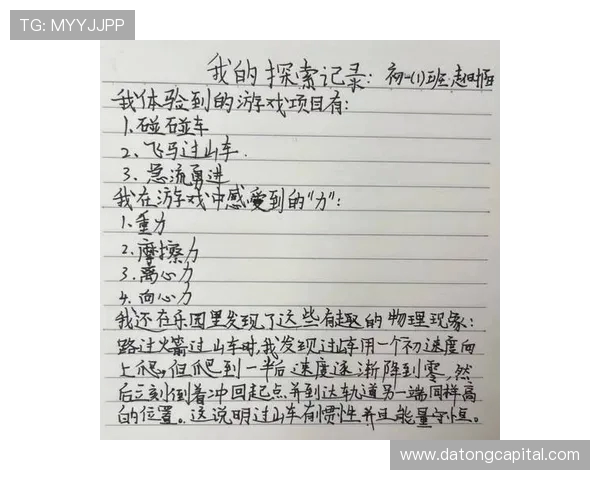 TG: MYYJJPP
我的探索记录: 初一(1)班 赵
我体验到的游戏项目有:
1、碰碰车
2、飞马过山车.
3、急流勇进
我在游戏中感受到的"力":
1、重力
2、摩擦力
3、离心力
4、向心力
我还在乐园里发现了这些有趣的物理现象:
路过火箭过山车时,我发现过山车用一个初速度向
上爬,但爬到一半后速度逐渐降到零,然
后立刻倒着冲回起点并到达轨道另一端同样高
的位置。这说明过山车有惯性并且能量守恒。
www.datongcapital.com